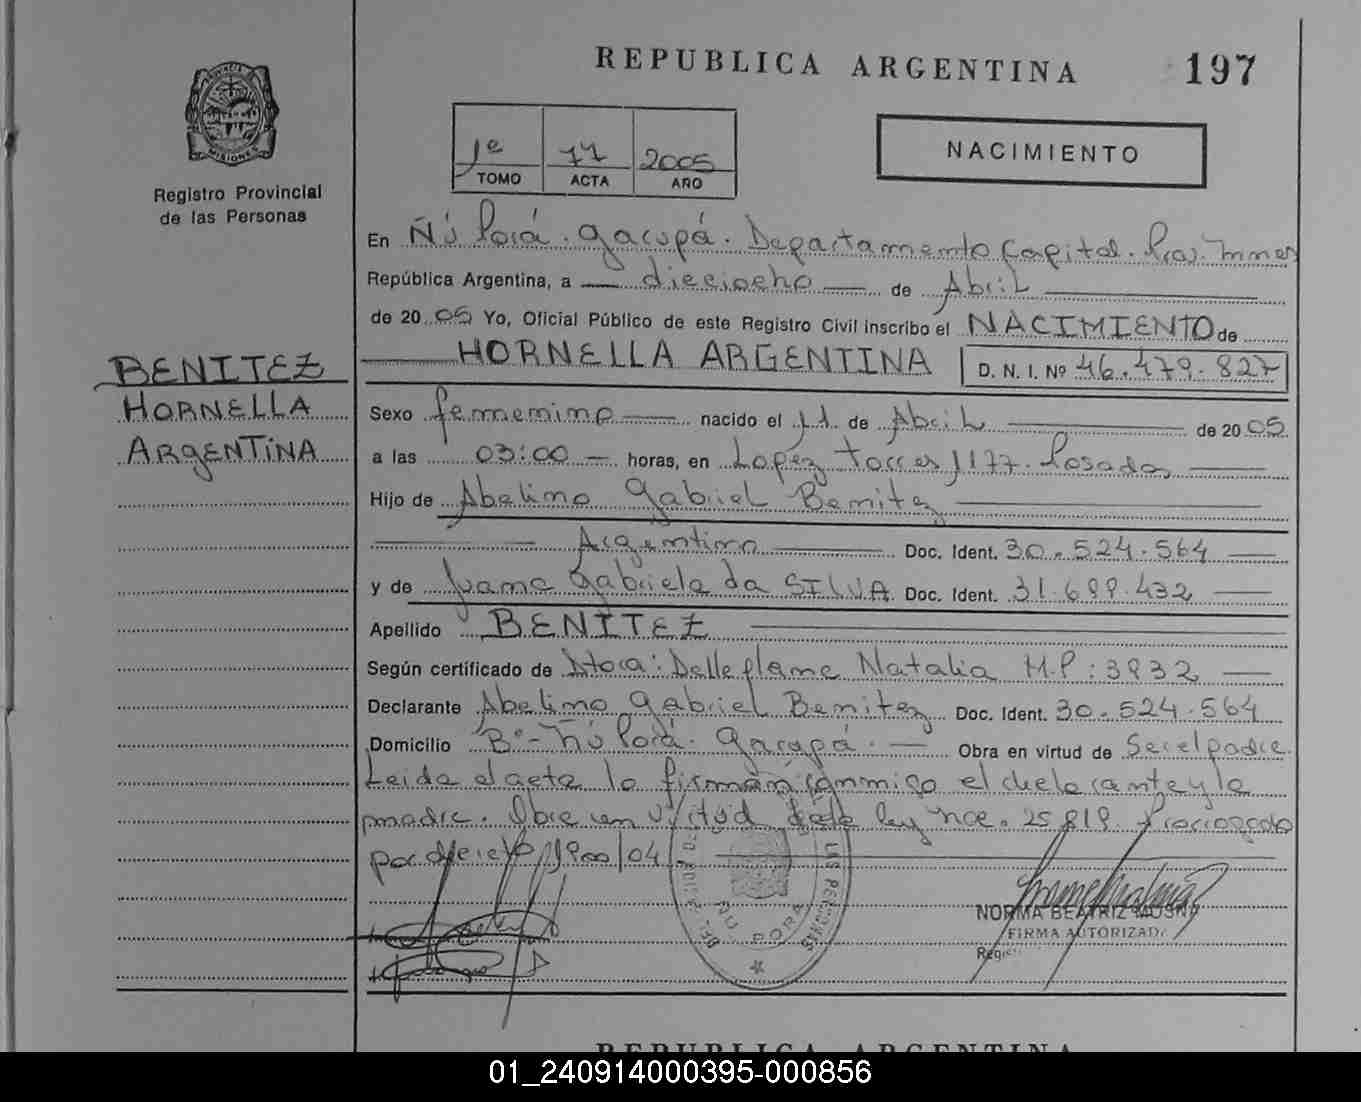 REPUBLICA ARGENTINA 197
PROVINCIA DE MISIONES
Registro Provincial
de las Personas
1º 77 2005
TOMO ACTA AÑO
NACIMIENTO
En Ñú Porá. Garupá. Departamento Capital. Prov. Mnes
República Argentina, a dieciocho de Abril
de 2005 Yo, Oficial Público de este Registro Civil inscribo el NACIMIENTO de
HORNELLA ARGENTINA D. N. I. Nº 46.479.827
BENITEZ
HORNELLA
ARGENTINA
Sexo femenino nacido el 11 de Abril de 2005
a las 03:00 horas, en Lopez Torres 1177. Posadas
Hijo de Abelino Gabriel Benitez
Argentino Doc. Ident. 30.524.564
y de Juana Gabriela da SILVA Doc. Ident. 31.699.432
Apellido BENITEZ
Según certificado de Dtora: Natalia M.P: 3932
Declarante Abelino Gabriel Benitez Doc. Ident. 30.524.564
Domicilio Bº- Ñú Porá. Garupá. Obra en virtud de Ser el padre.
Leida el acta la firman conmigo el declarante y la
madre. Obra en virtud de la ley nro. 25819
por decreto 1900/04
NORMA BEATRIZ MUSNY
FIRMA AUTORIZADA
LAS PERSONAS
ÑU PORA
REPUBLICA ARGENTINA
01_240914000395-000856